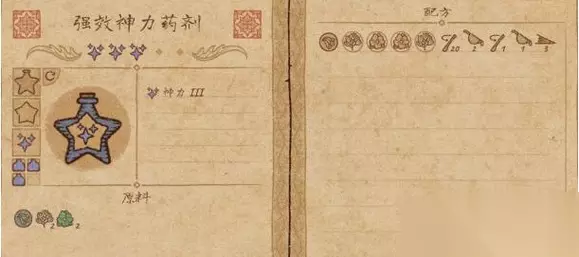 强效神力药剂
神力 III
原料
2 2
配方
20 2 1 1 3